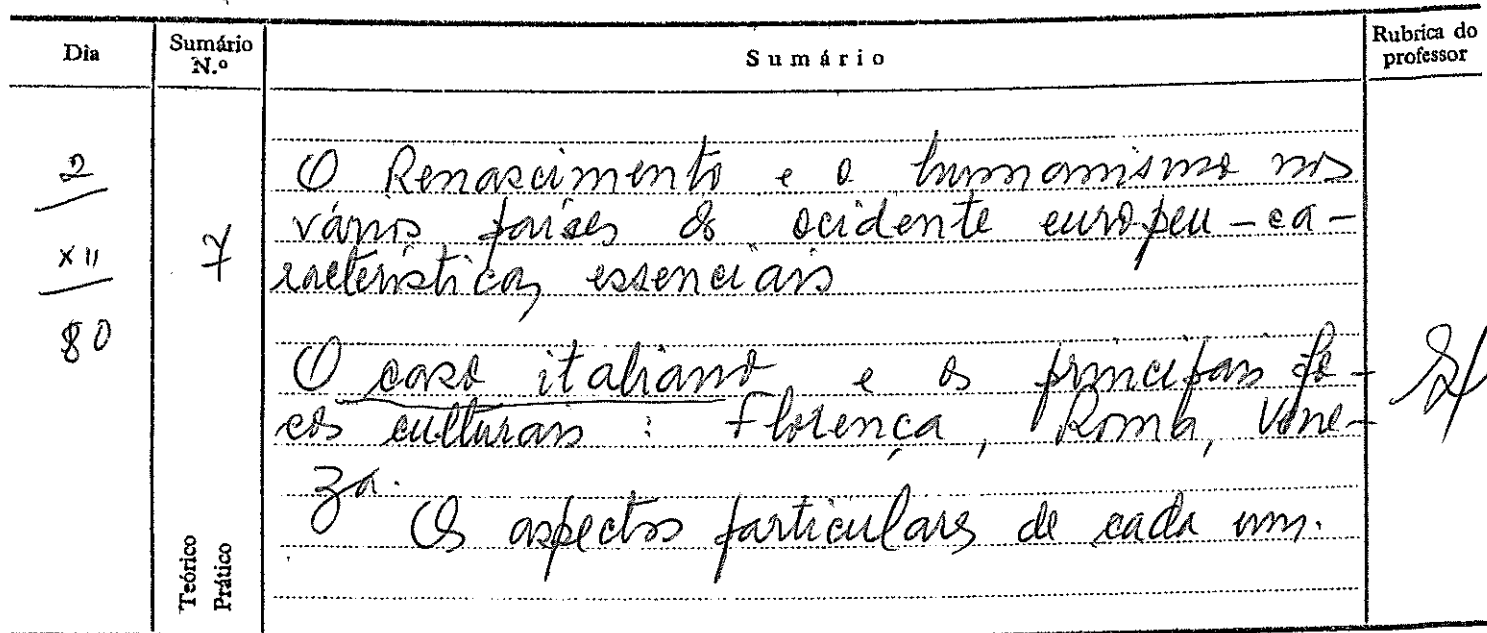 Dia
Sumário
N.º
Sumário
Rubrica do
professor
2
XII
80
7
O Renascimento e o humanismo nos
vários países do ocidente europeu - ca-
racterísticas essenciais
O caso italiano e os principais fo-
cos culturais : Florença, Roma, Vene-
za.
Os aspectos particulares de cada um.
Teórico
Prático